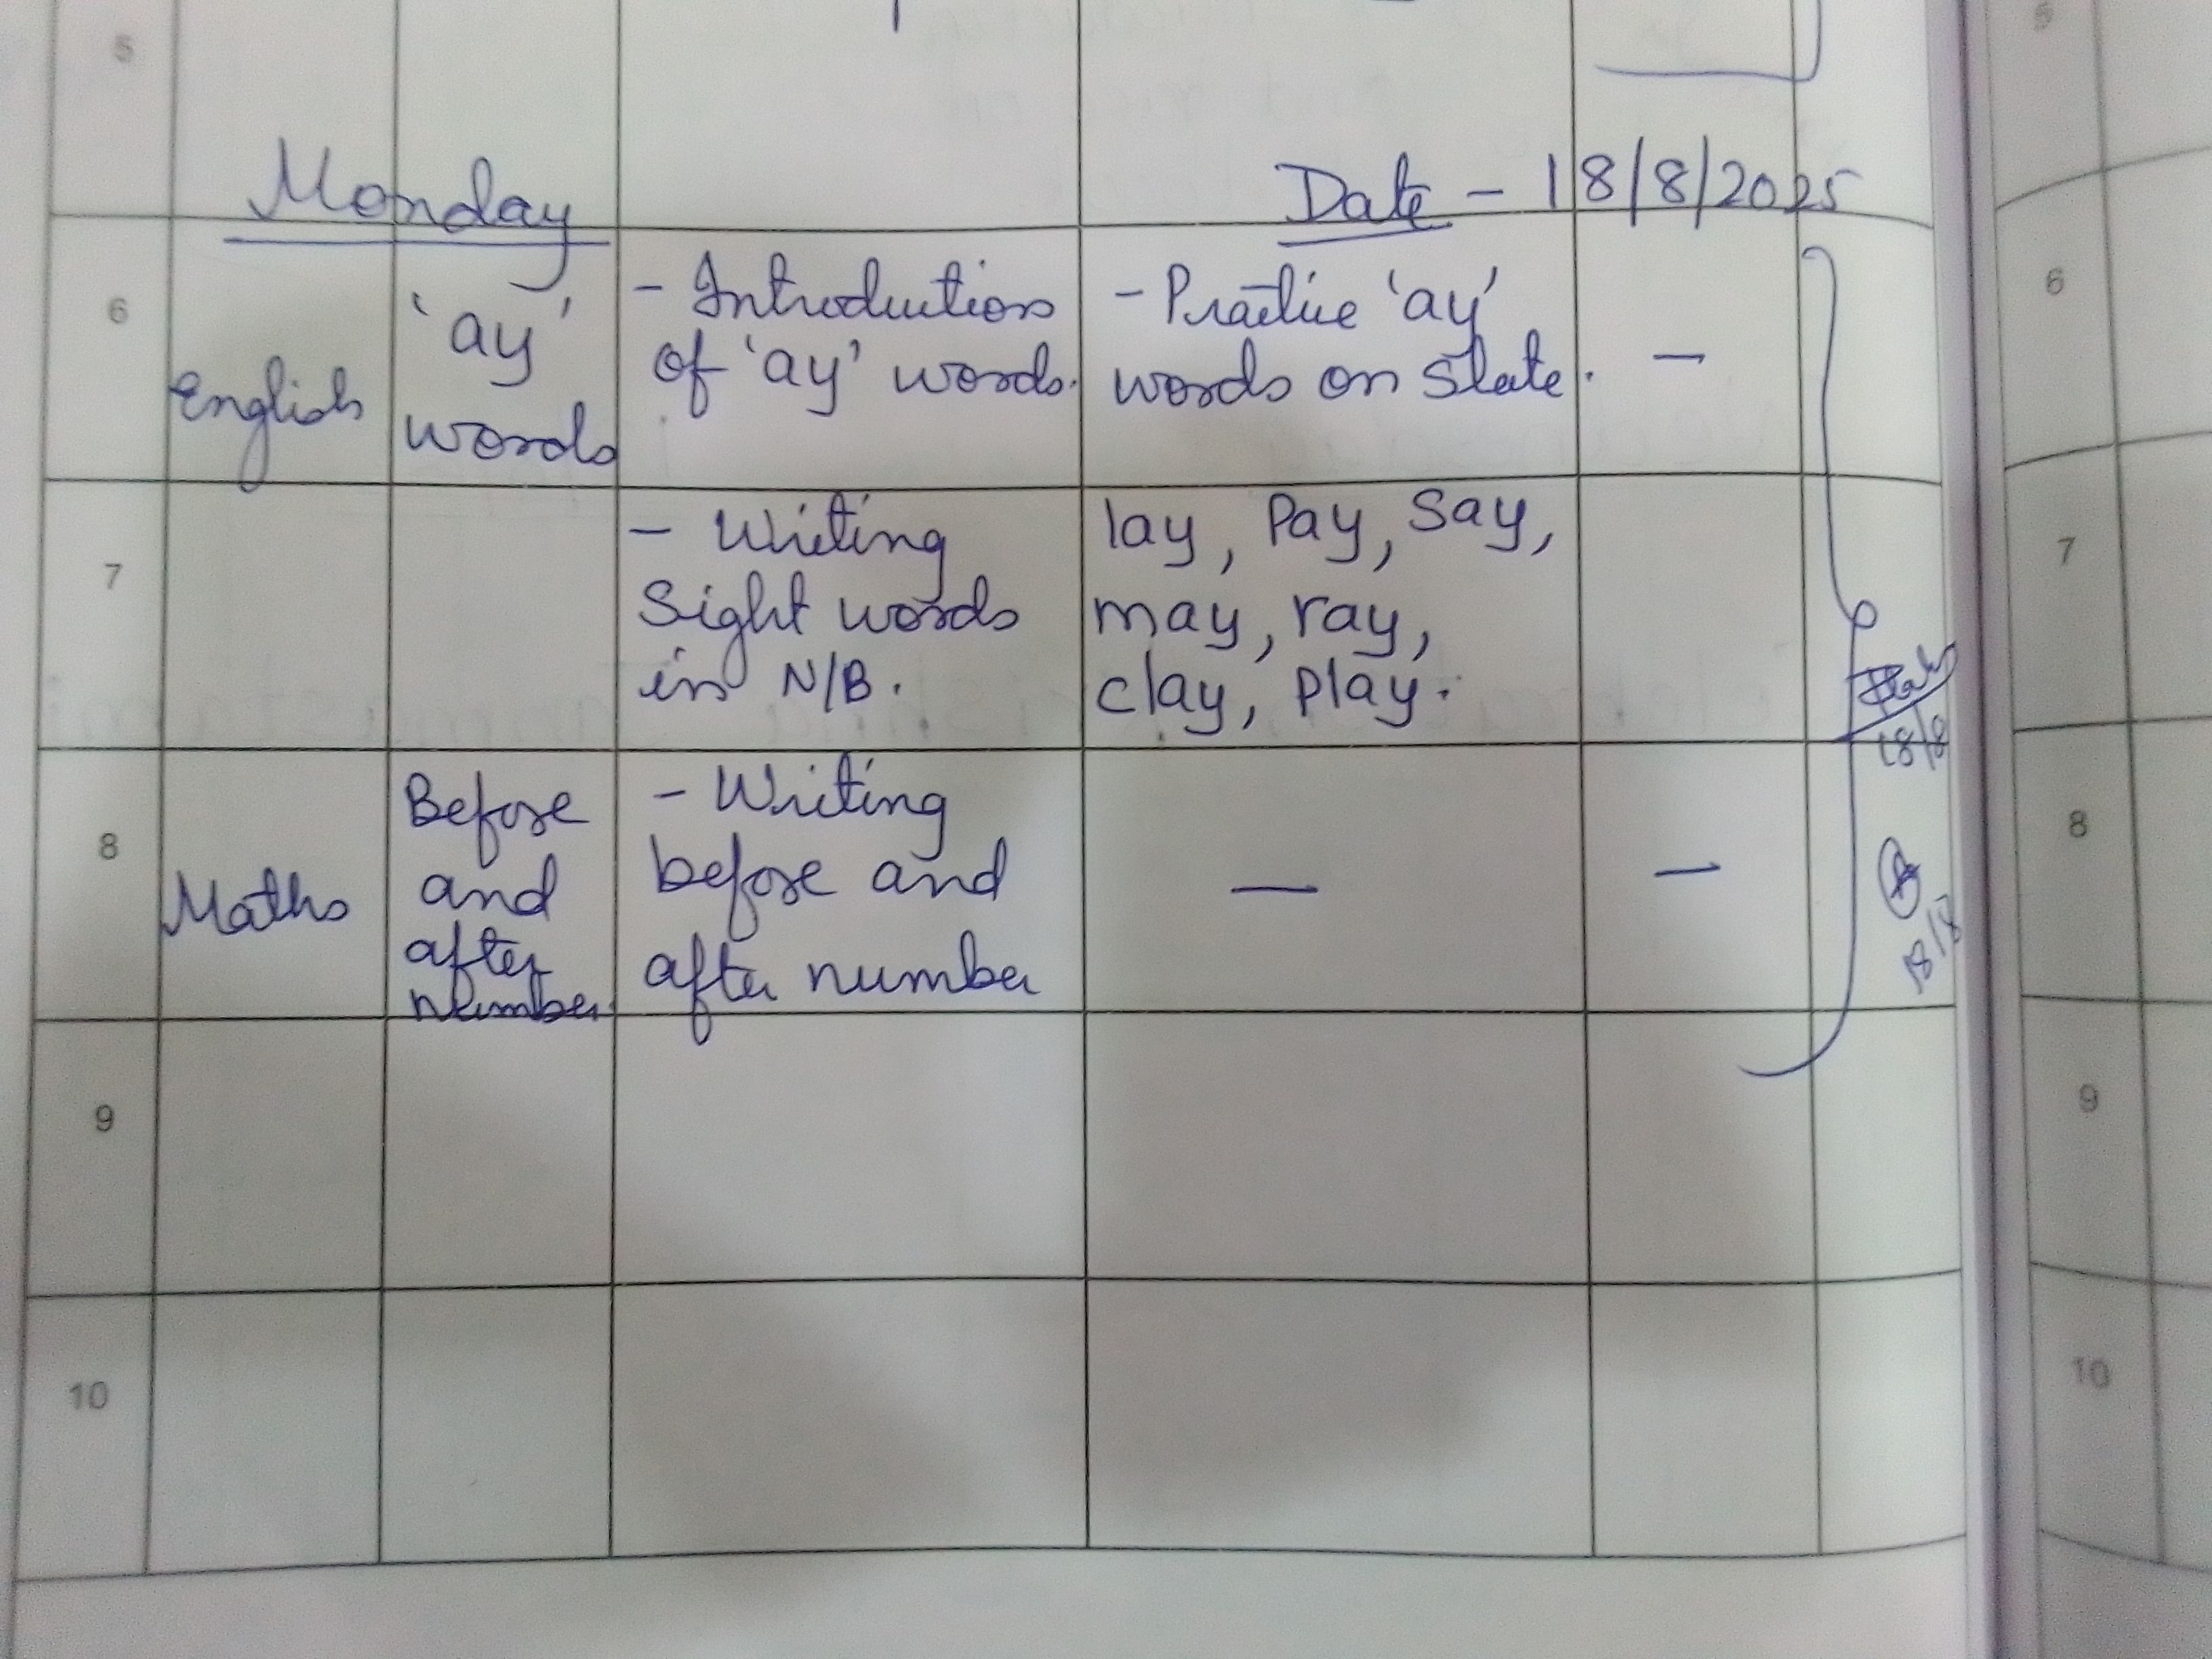 5
Monday
Date - 18/8/2025
6
English
'ay'
words
- Introduction
of 'ay' words.
- Practice 'ay'
words on Slate.
-
7
- Writing
Sight words
in N/B.
lay, Pay, Say,
may, ray,
clay, play.
18/8
8
Maths
Before
and
after
number
- Writing
before and
after number
-
-
18/8
9
10
5
6
7
8
9
10